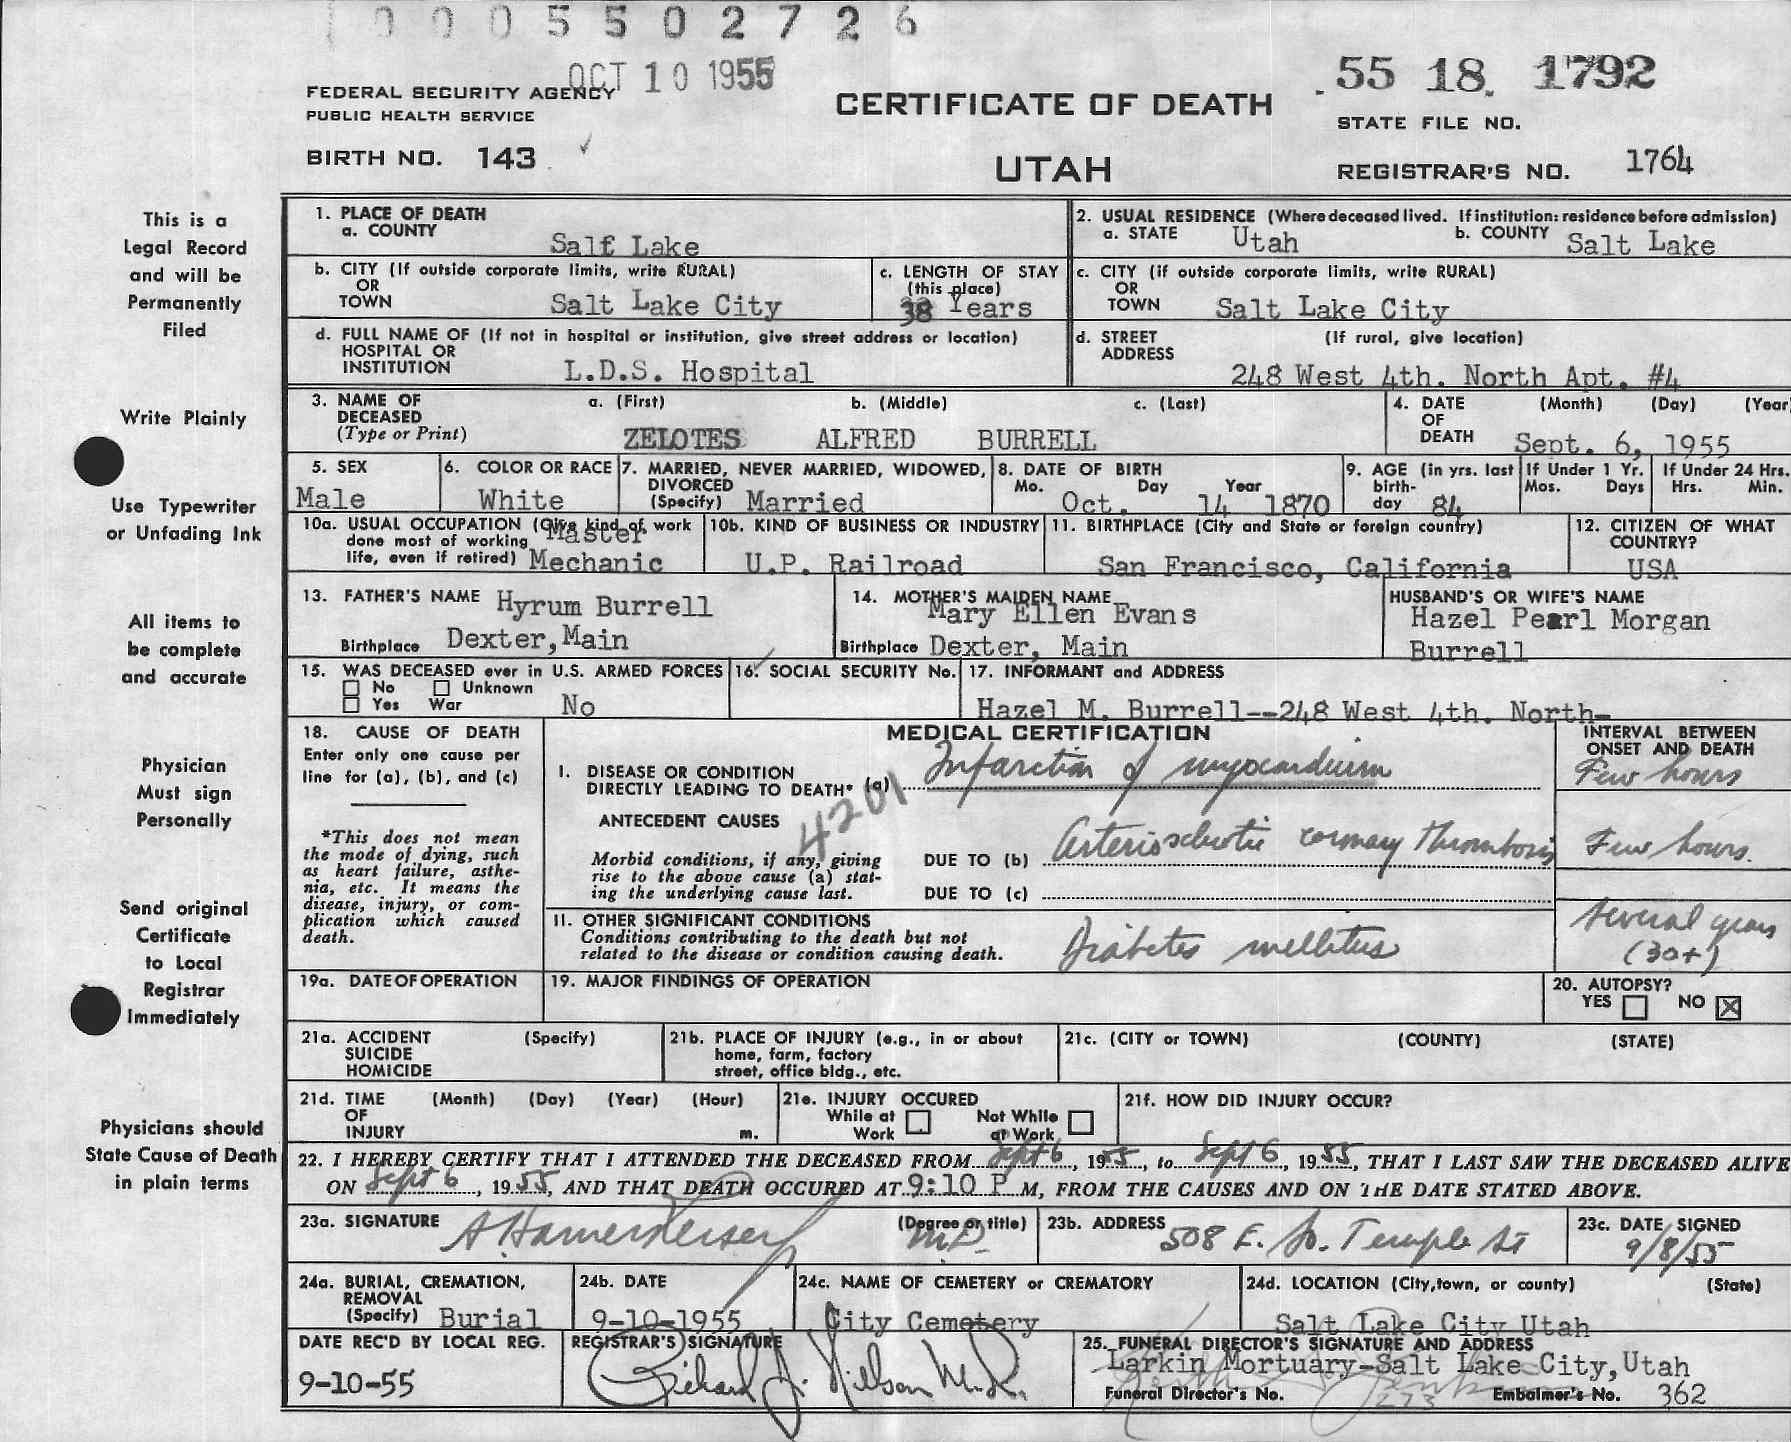 0005502726
OCT 10 1955
55 18 1792
FEDERAL SECURITY AGENCY
PUBLIC HEALTH SERVICE
CERTIFICATE OF DEATH
STATE FILE NO.
BIRTH NO. 143
UTAH
REGISTRAR'S NO. 1764
This is a
Legal Record
and will be
Permanently
Filed
Write Plainly
Use Typewriter
or Unfading Ink
All items to
be complete
and accurate
Physician
Must sign
Personally
Send original
Certificate
to Local
Registrar
Immediately
Physicians should
State Cause of Death
in plain terms
1. PLACE OF DEATH
a. COUNTY
Salt Lake
2. USUAL RESIDENCE (Where deceased lived. If institution: residence before admission)
a. STATE Utah b. COUNTY Salt Lake
b. CITY (If outside corporate limits, write RURAL)
OR
TOWN Salt Lake City
c. LENGTH OF STAY
(this place)
38 Years
c. CITY (if outside corporate limits, write RURAL)
OR
TOWN Salt Lake City
d. FULL NAME OF (If not in hospital or institution, give street address or location)
HOSPITAL OR
INSTITUTION L.D.S. Hospital
d. STREET (If rural, give location)
ADDRESS
248 West 4th. North Apt. #4
3. NAME OF a. (First) b. (Middle) c. (Last)
DECEASED
(Type or Print) ZELOTES ALFRED BURRELL
4. DATE (Month) (Day) (Year
OF
DEATH Sept. 6, 1955
5. SEX
Male
6. COLOR OR RACE
White
7. MARRIED, NEVER MARRIED, WIDOWED,
DIVORCED
(Specify) Married
8. DATE OF BIRTH
Mo. Day Year
Oct. 14 1870
9. AGE (in yrs. last
birth-
day 84
If Under 1 Yr.
Mos. Days
If Under 24 Hrs.
Hrs. Min.
10a. USUAL OCCUPATION (Give kind of work
done most of working Master
life, even if retired) Mechanic
10b. KIND OF BUSINESS OR INDUSTRY
U.P. Railroad
11. BIRTHPLACE (City and State or foreign country)
San Francisco, California
12. CITIZEN OF WHAT
COUNTRY?
USA
13. FATHER'S NAME Hyrum Burrell
Birthplace Dexter, Main
14. MOTHER'S MAIDEN NAME
Mary Ellen Evans
Birthplace Dexter, Main
HUSBAND'S OR WIFE'S NAME
Hazel Pearl Morgan
Burrell
15. WAS DECEASED ever in U.S. ARMED FORCES
No Unknown
Yes War No
16. SOCIAL SECURITY No.
17. INFORMANT and ADDRESS
Hazel M. Burrell--248 West 4th. North-
18. CAUSE OF DEATH
Enter only one cause per
line for (a), (b), and (c)
*This does not mean
the mode of dying, such
as heart failure, asthe-
nia, etc. It means the
disease, injury, or com-
plication which caused
death.
MEDICAL CERTIFICATION
INTERVAL BETWEEN
ONSET AND DEATH
I. DISEASE OR CONDITION
DIRECTLY LEADING TO DEATH* (a) Infarction of myocardium
Few hours
4201
ANTECEDENT CAUSES
Morbid conditions, if any, giving
rise to the above cause (a) stat-
ing the underlying cause last.
DUE TO (b) Arteriosclerotic coronary thrombosis
Few hours.
DUE TO (c)
II. OTHER SIGNIFICANT CONDITIONS
Conditions contributing to the death but not
related to the disease or condition causing death.
Diabetes mellitus
Several years
(30+)
19a. DATE OF OPERATION
19. MAJOR FINDINGS OF OPERATION
20. AUTOPSY?
YES NO X
21a. ACCIDENT (Specify)
SUICIDE
HOMICIDE
21b. PLACE OF INJURY (e.g., in or about
home, farm, factory
street, office bldg., etc.
21c. (CITY or TOWN) (COUNTY) (STATE)
21d. TIME (Month) (Day) (Year) (Hour)
OF
INJURY m.
21e. INJURY OCCURED
While at Not While
Work at Work
21f. HOW DID INJURY OCCUR?
22. I HEREBY CERTIFY THAT I ATTENDED THE DECEASED FROM Sept 6, 1955, to Sept 6, 1955, THAT I LAST SAW THE DECEASED ALIVE
ON Sept 6, 1955, AND THAT DEATH OCCURED AT 9:10 P M, FROM THE CAUSES AND ON THE DATE STATED ABOVE.
23a. SIGNATURE (Degree or title)
M.D.
23b. ADDRESS
508 E. So. Temple St
23c. DATE SIGNED
9/8/55
24a. BURIAL, CREMATION,
REMOVAL
(Specify) Burial
24b. DATE
9-10-1955
24c. NAME OF CEMETERY or CREMATORY
City Cemetery
24d. LOCATION (City, town, or county) (State)
Salt Lake City Utah
DATE REC'D BY LOCAL REG.
9-10-55
REGISTRAR'S SIGNATURE
Richard J. Nielson M.D.
25. FUNERAL DIRECTOR'S SIGNATURE AND ADDRESS
Larkin Mortuary-Salt Lake City, Utah
Funeral Director's No. 273 Embalmer's No. 362